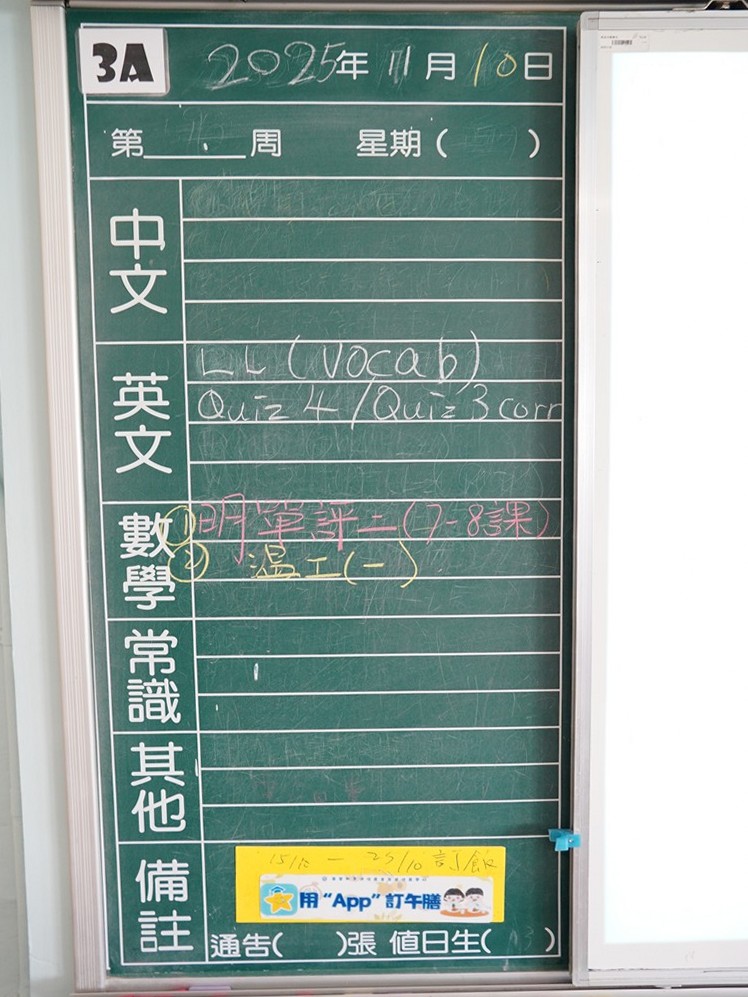 3A 2025年 11月10日
第 周 星期( )
中文
英文
LL (Vocab)
Quiz 4 / Quiz 3 corr
數學
①明單評二(7-8課)
② 溫工(一)
常識
其他
備註
訂飯
用 “App” 訂午膳
通告( )張 值日生( )